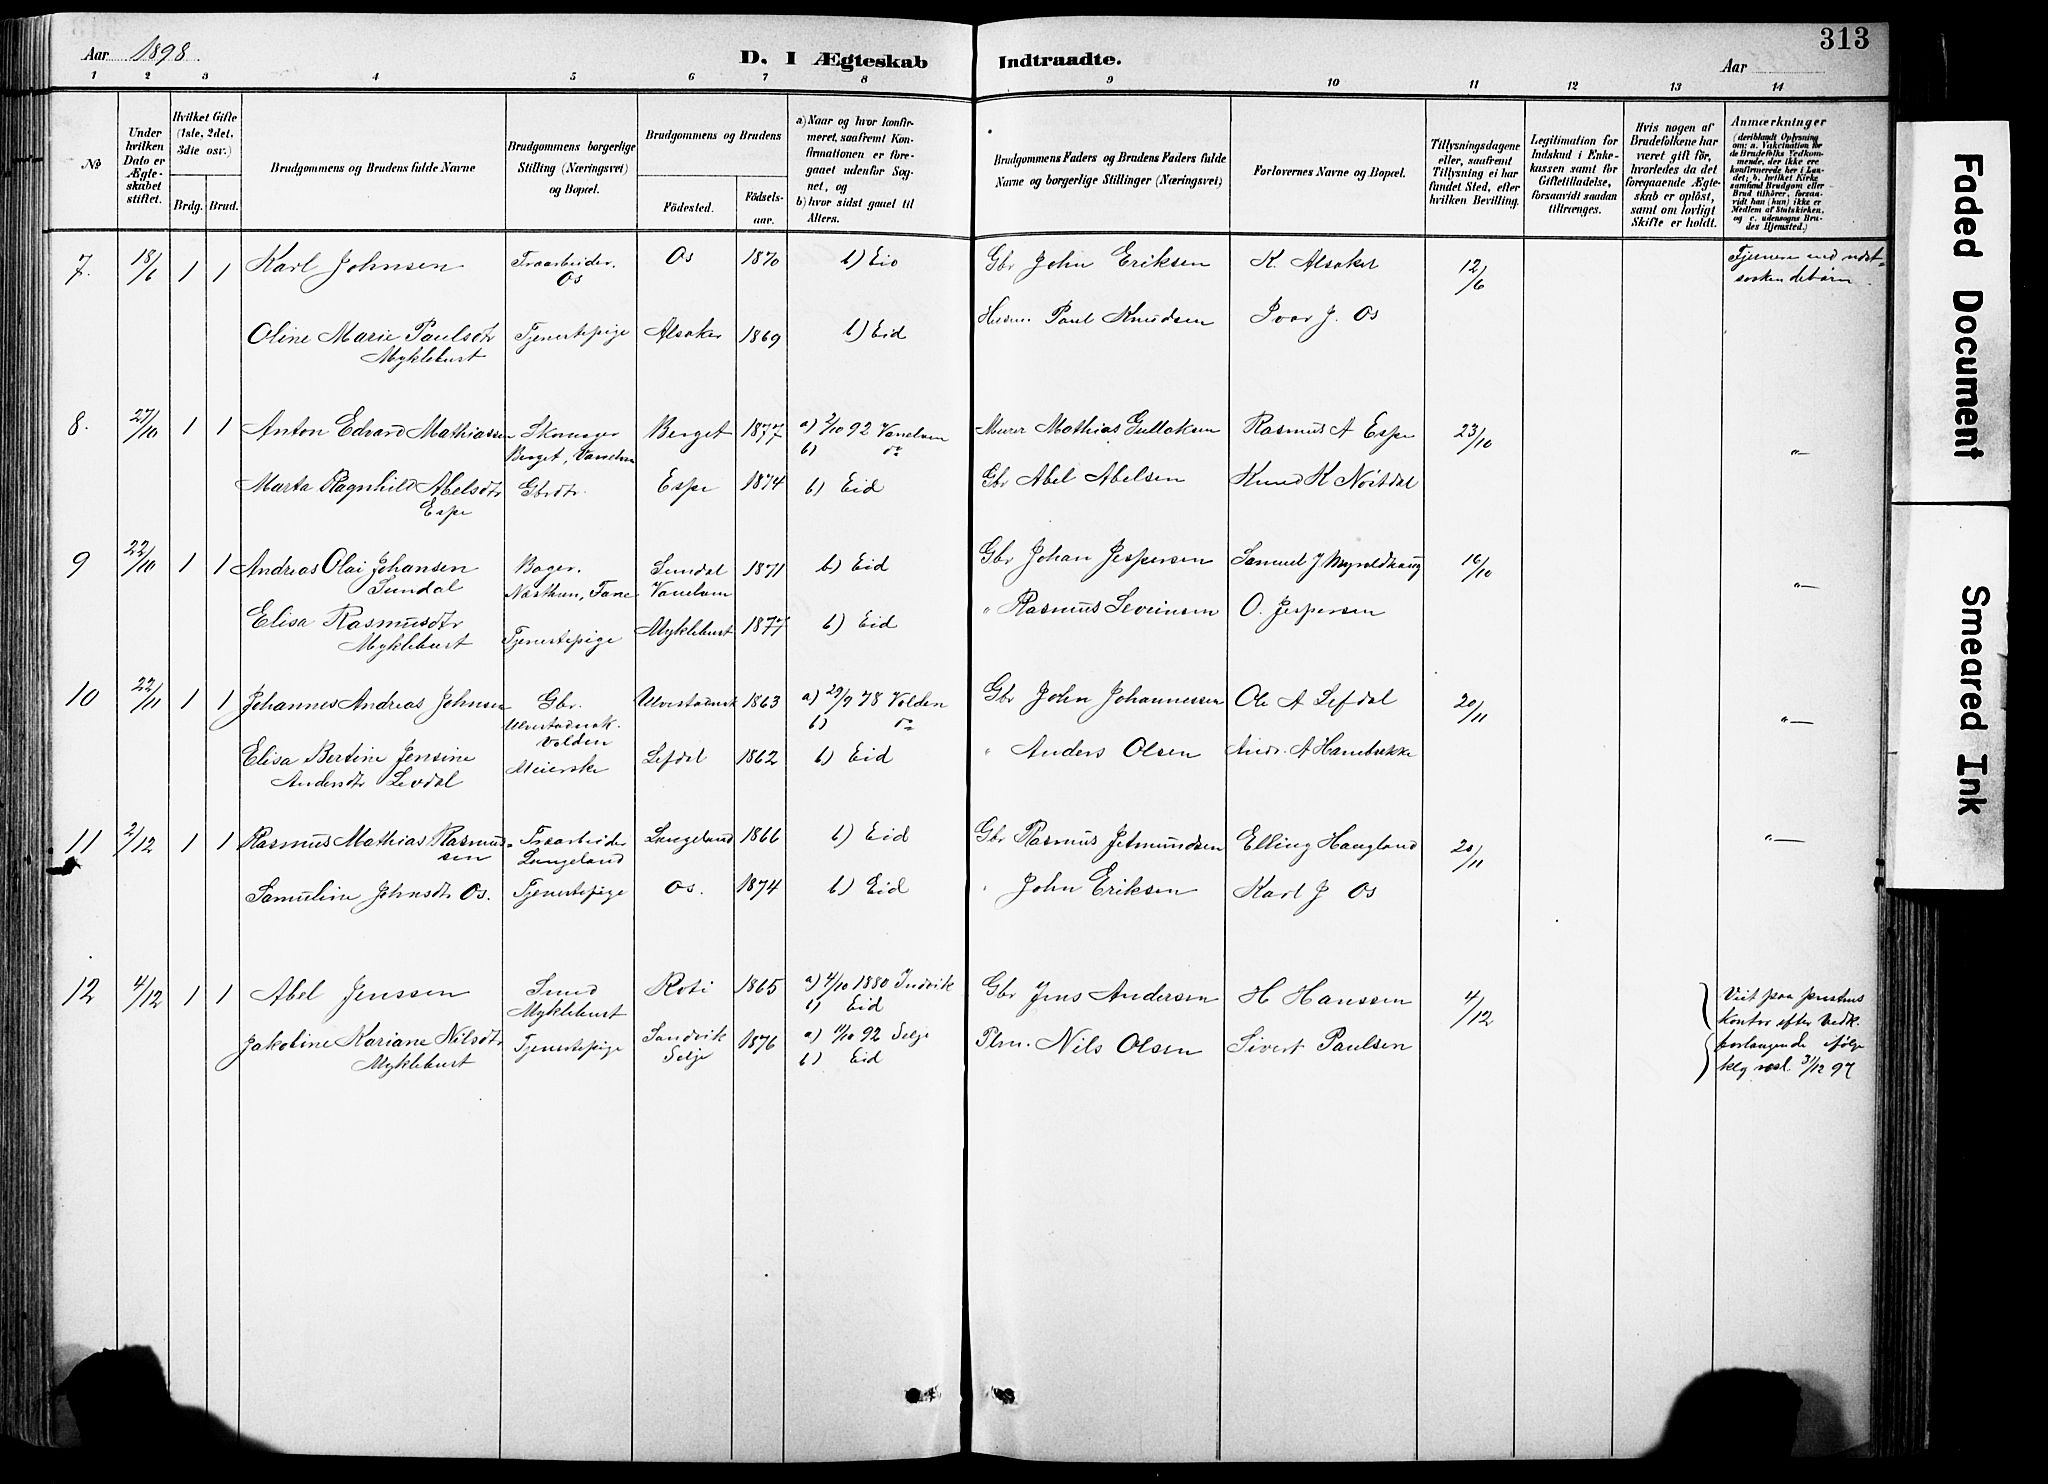 Aar 1898. D. I Ægteskab Indtraadte. Aar 313
1 2 3 4 5 6 7 8 9 10 11 12 13 14
No
Under hvilken Dato er Ægteskabet stiftet.
Hvilket Gifte (1ste, 2det, 3die osv.)
Brdg. Brud.
Brudgommens og Brudens fulde Navne
Brudgommens borgerlige Stilling (Næringsvei) og Bopæl.
Brudgommens og Brudens
Fødested. Fødselsaar.
a) Naar og hvor konfirmeret, saafremt Konfirmationen er foregaaet udenfor Sognet, og
b) hvor sidst gaaet til Alters.
Brudgommens Faders og Brudens Faders fulde Navne og borgerlige Stillinger (Næringsvei)
Forlovernes Navne og Bopæl.
Tillysningsdagene eller, saafremt Tillysning ei har fundet Sted, efter hvilken Bevilling.
Legitimation for Indskud i Enkekassen samt for Giftetilladelse, forsaavidt saadan tiltrænges.
Hvis nogen af Brudefolkene har været gift før, hvorledes da det foregaaende Ægteskab er opløst, samt om lovligt Skifte er holdt.
Anmærkninger (deriblandt Oplysning om: a. Vakcination for de Brudefolks Vedkommende, der ikke ere konfirmerede her i Landet; b. hvilket Kirkesamfund Brudgom eller Brud tilhører, forsaavidt han (hun) ikke er Medlem af Statskirken, og c. udensogns Brudes Hjemsted.)
7. 18/6 1 1 Karl Johnsen Træarbeider. Os 1870 b) Eid Gbr John Eriksen K. Alsaker 12/6
Os
Oline Marie Paulsdtr Tjenestepige Alsaker 1869 b) Eid Husm. Paul Knudsen Ivar J. Os
Myklebust
8. 27/10 1 1 Anton Edvard Mathiassen Skomager Berget 1877 a) 2/10 92 Vanelven Murer Mathias Gullaksen Rasmus A Espe 23/10 "
Berget, Vanelven b) do
Marta Ragnhild Abelsdtr Gbrdtr. Espe 1874 b) Eid Gbr Abel Abelsen Knud K Nøstdal
Espe
9 22/10 1 1 Andreas Olai Johansen Bager. Sundal 1871 b) Eid Gbr Johan Jespersen Samuel J Myroldhaug 16/10 "
Sundal Næsttun, Fane Vanelven
Elisa Rasmusdtr Tjenestepige Myklebust 1877 b) Eid " Rasmus Severinsen O. Jespersen
Myklebust
10 22/11 1 1 Johannes Andreas Johnsen Gbr. Ulvestadmrk 1863 a) 29/9 78 Volden Gbr John Johannessen Ole A Lefdal 20/11 "
Ulvestadmrk. b) do
Volden
Elisa Bertine Jensine Meierske Lefdal 1862 b) Eid " Anders Olsen Andr. A Hanebrekke
Andersdtr Levdal
11 2/12 1 1 Rasmus Mathias Rasmus- Træarbeider Langeland 1866 b) Eid Gbr Rasmus Jetmundsen Elling Haugland 20/11 "
sen Langeland
Samuline Johnsdtr Os. Tjenestepige Os. 1874 b) Eid " John Eriksen Karl J Os
12 4/12 1 1 Abel Jenssen Smed Roti 1865 a) 4/10 1880 Indvik Gbr Jens Andersen H Hanssen 4/12 Viet paa prestens
Myklebust b) Eid kontor efter Vedk.
Jakobine Kariane Nilsdtr Tjenestepige Sandvik 1876 a) 11/10 92 Selje Plm. Nils Olsen Sivert Paulsen forlangende ifølge
Myklebust Selje b) Eid klg resl. 3/12 97
Faded Document
Smeared Ink